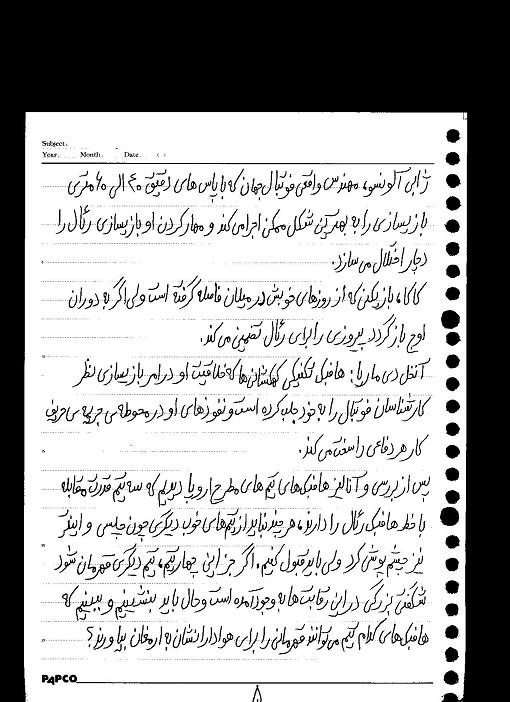 Subject:
Year. Month. Date. ( )
ژابی آلونسو، مهندس واقعی فوتبال جهان که با پاس های دقیق ۴۰ الی ۶۰ متری
بازیسازی را به بهترین شکل ممکن اجرا می کند و مهار کردن او بازیسازی رئال را
دچار اختلال می سازد.
کاکا، بازیکنی که از روزهای خوبش در میلان فاصله گرفته است ولی اگر به دوران
اوج بازگردد پیروزی را برای رئال تضمین می کند.
آنخل دی ماریا: هافبک تکنیکی کهکشانی ها که خلاقیت او در امر بازیسازی نظر
کارشناسان فوتبال را به خود جلب کرده است و نفوذهای او در محوطه ی جریمه ی حریف
کار هر دفاعی را سخت می کند.
پس از بررسی و آنالیز هافبک های تیم های مطرح اروپا دیدیم که سه تیم قدرت مقابله
با خط هافبک رئال را دارند، هر چند نباید از تیم های خوب دیگری چون چلسی و اینتر
نیز چشم پوشی کرد ولی باید قبول کنیم، اگر جز این چهار تیم، تیم دیگری قهرمان شود
شگفتی بزرگی در این رقابت ها به وجود آمده است و حال باید بنشینیم و ببینیم که
هافبک های کدام تیم می توانند قهرمانی را برای هوادارانشان به ارمغان بیاورند؟
PAPCO